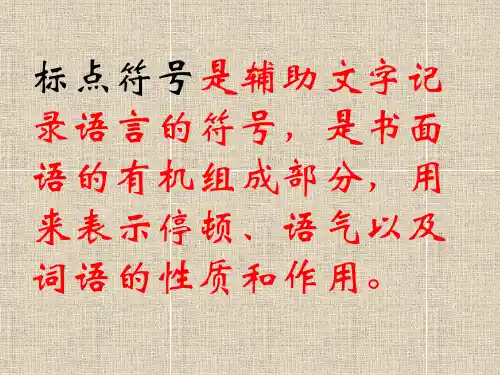 标点符号是辅助文字记
录语言的符号，是书面
语的有机组成部分，用
来表示停顿、语气以及
词语的性质和作用。